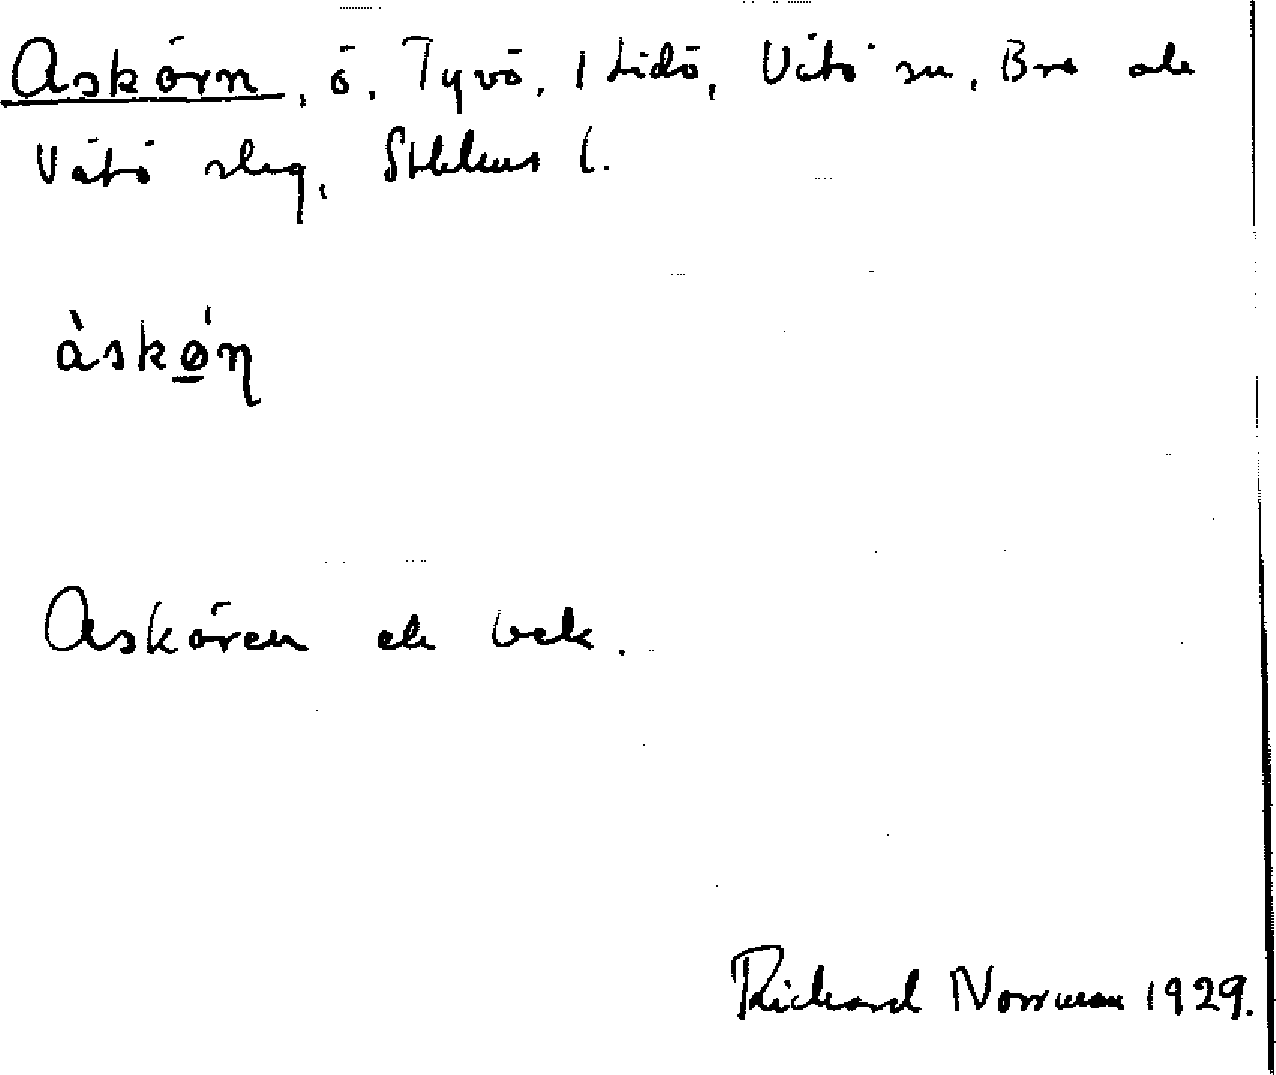 Askörn, ö, Tyvö, 1 Lidö, Vätö sn, Bro och
Vätö slg, Sthlms l.
àskǿ̱ɳ
Askören ej bek.
Richard Norrman 1929.